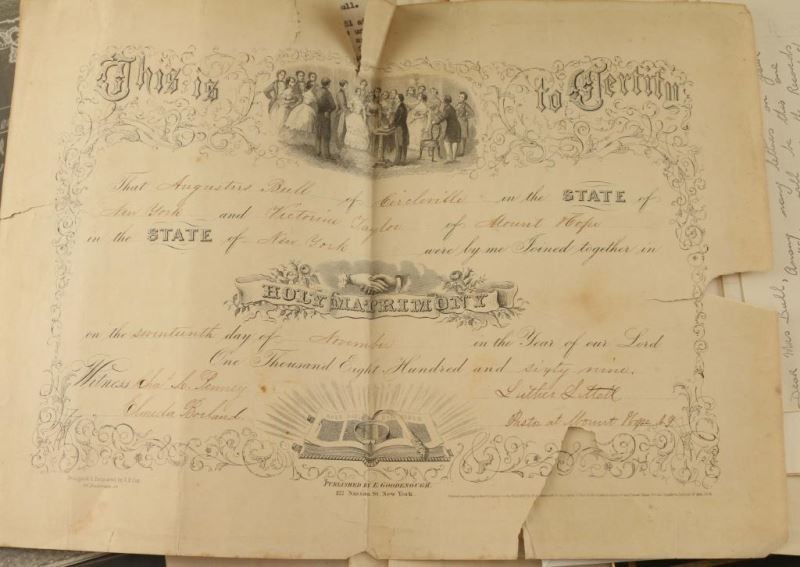 all.
This is to Certify
That Augustus Bull of Circleville in the STATE of
New York and Victorine Taylor of Mount Hope
in the STATE of New York were by me Joined together in
HOLY MATRIMONY
on the seventeenth day of November in the Year of our Lord
One Thousand Eight Hundred and sixty nine.
Witness Penney Luther Littell
Elmeda Pastor at Mount Hope N.Y.
PUBLISHED BY E. GOODENOUGH.
122 Nassau St. New York.
Dear Mrs Bull,